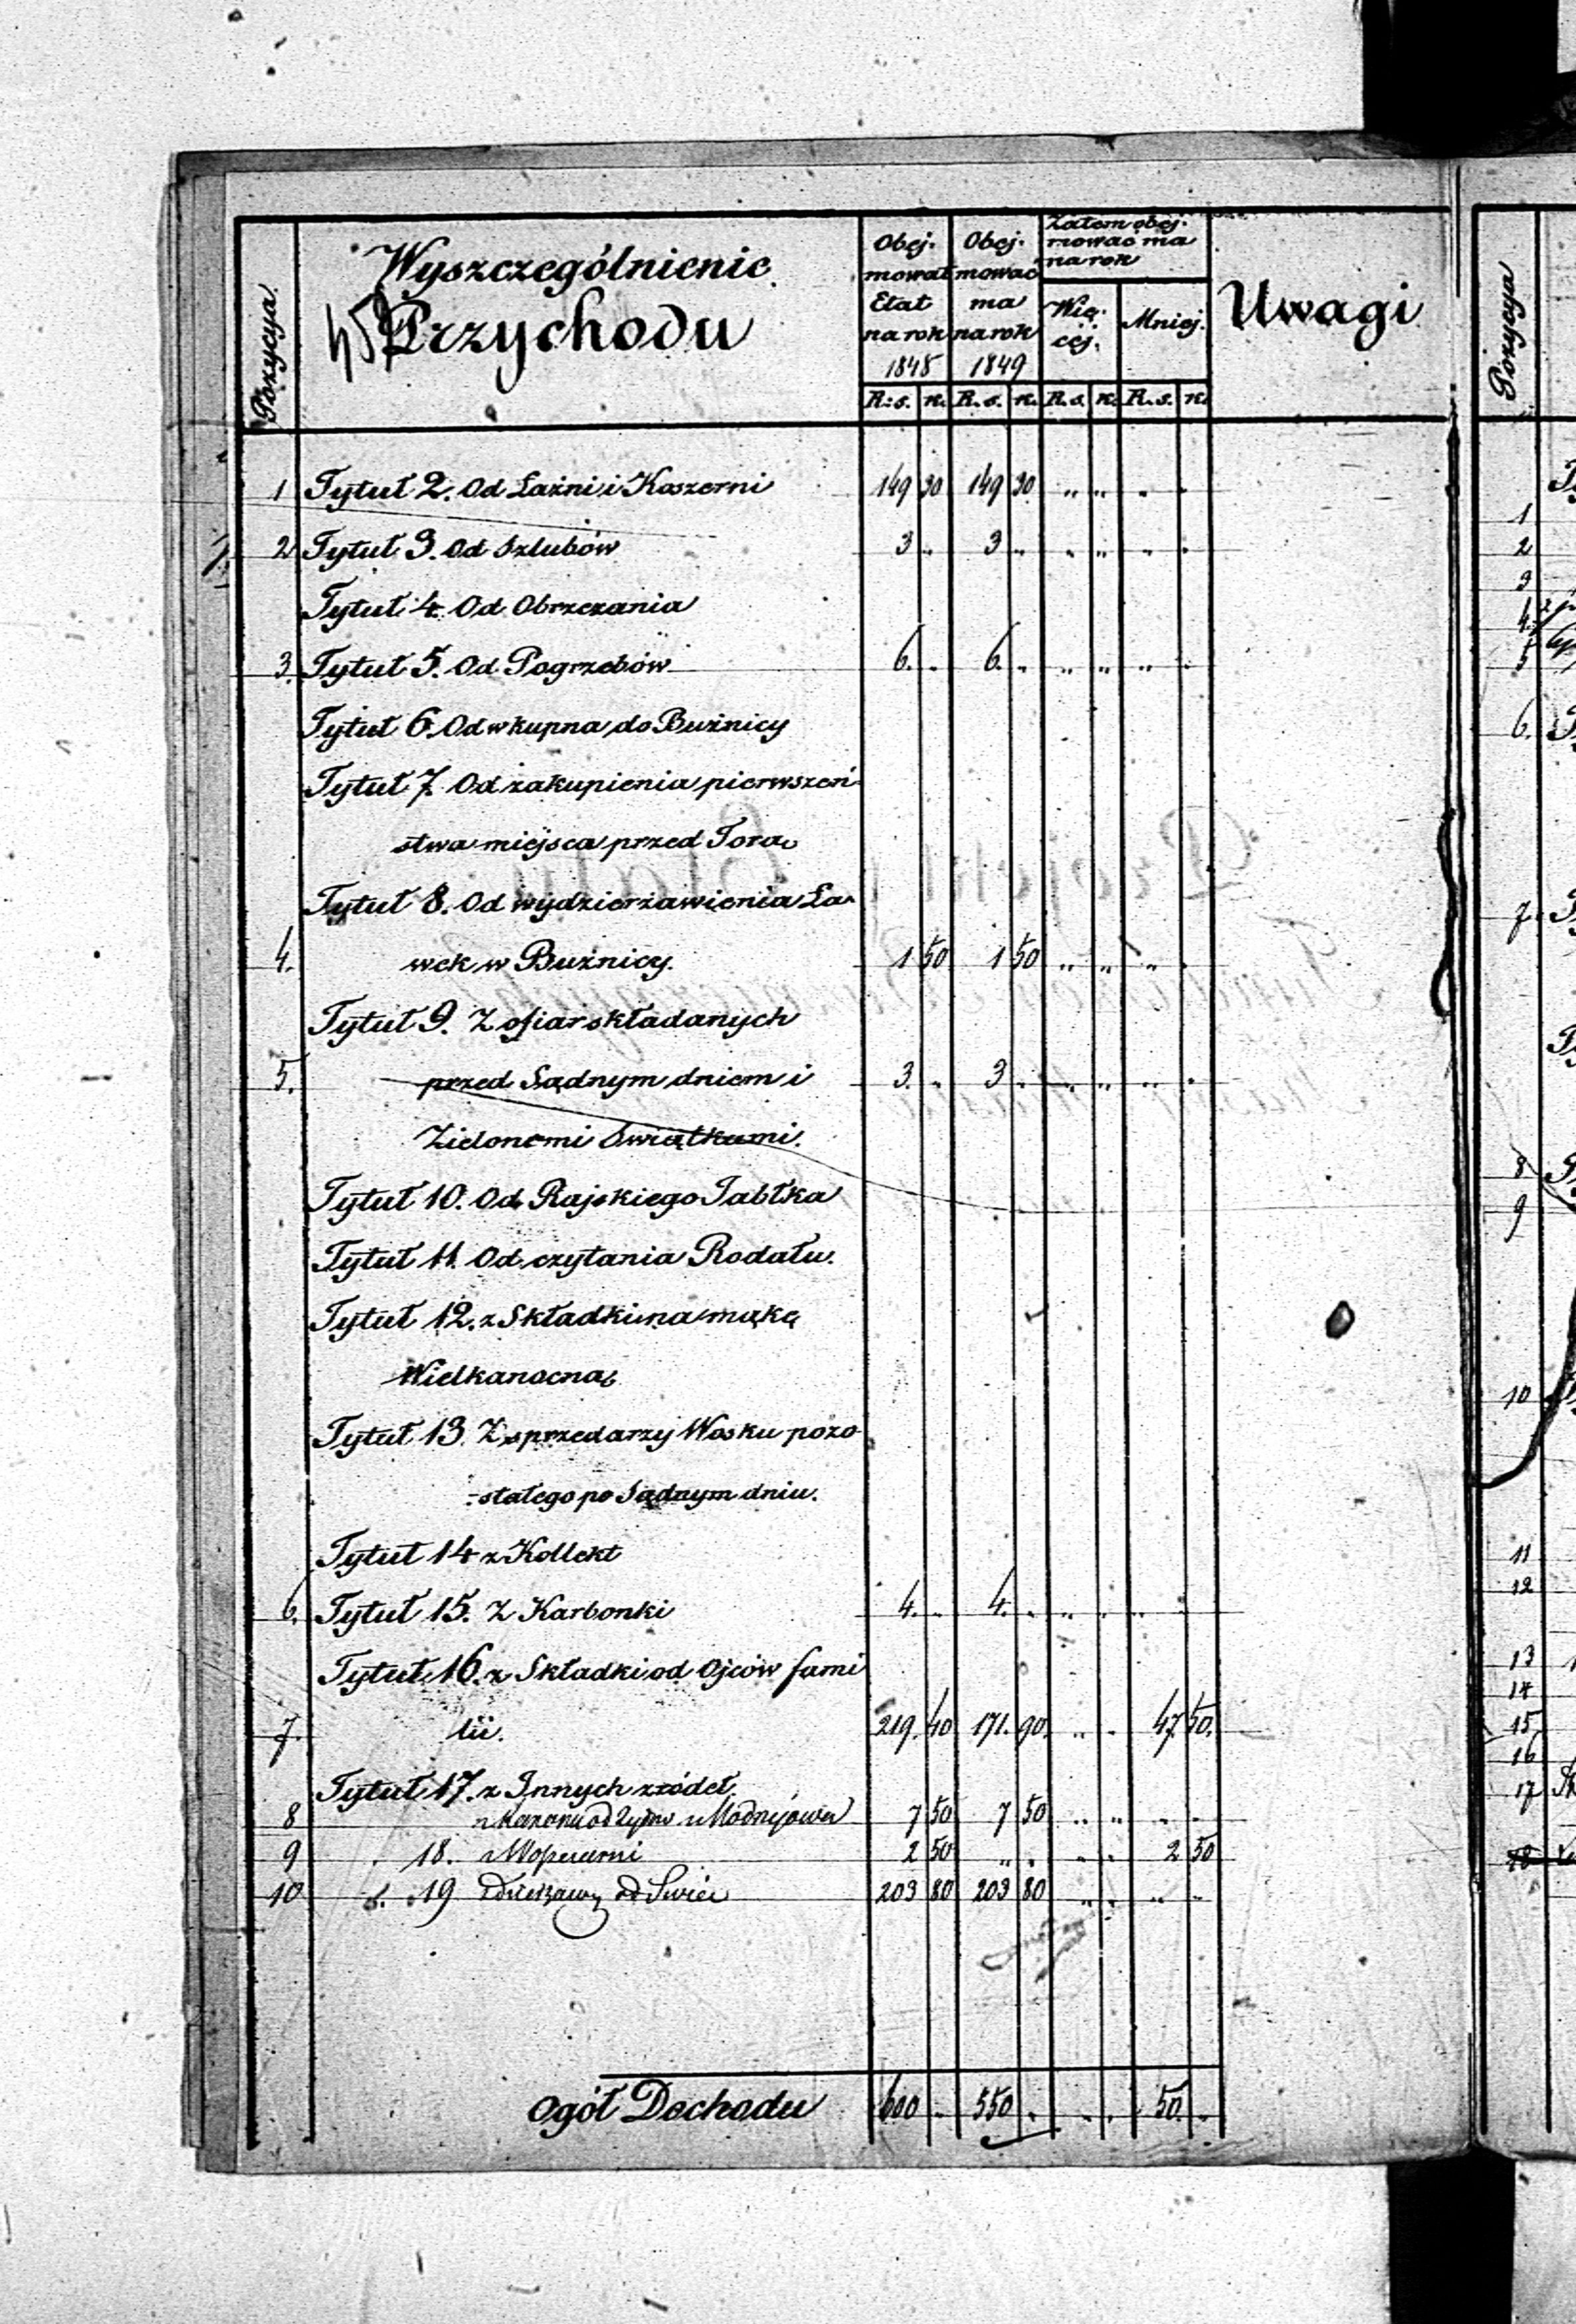 Pozycya
Wyszczególnienie
Przychodu
Obej-
mował
Etat
na rok
1848
Obej-
mować
ma
na rok
1849
Zatem obej-
mować ma
na rok
Wię-
cej.
Mniej.
Uwagi
R. s. k. R. s. k. R. s. k. R. s. k.
1 Tytuł 2. Od Łaźni i Koszerni 149 30 149 30 " " " "
2 Tytuł 3. Od Szlubów 3 " 3 " " " " "
Tytuł 4. Od Obrzezania
3. Tytuł 5. Od Pogrzebów 6. " 6. " " " " "
Tytuł 6. Od wkupna do Bużnicy
Tytuł 7. Od zakupienia pierwszeń-
stwa miejsca przed Torą
Tytuł 8. Od wydzierżawienia Ła-
4. wek w Bużnicy. 1 50 1 50 " " " "
Tytuł 9. Z ofiar składanych
5. przed Sądnym dniem i 3. " 3 " " " " "
Zielonemi Swiątkami.
Tytuł 10. Od Rajskiego Jabłka
Tytuł 11. Od czytania Rodału.
Tytuł 12. z Składki na mąkę
Wielkanocną
Tytuł 13. Z sprzedarzy Wosku pozo
-stałego po Sądnym dniu.
Tytuł 14 z Kollekt
6. Tytuł 15. Z Karbonki 4. " 4. " " " " "
Tytuł 16. z Składki od Ojców fami
7. lii. 219. 40 171. 90. " " 47. 50.
Tytuł 17. z Innych zródeł
8 od 7 50 7 50 " " " "
9 18. 2 50 " " " " 2 50
10 19 od Swiec 203 80 203 80 " " " "
Ogół Dochodu 600 " 550 " " " 50. "
Pozycya
1
2
3
4.
5
6.
7.
8
9
10
11
12
13
14
15
16
17
18